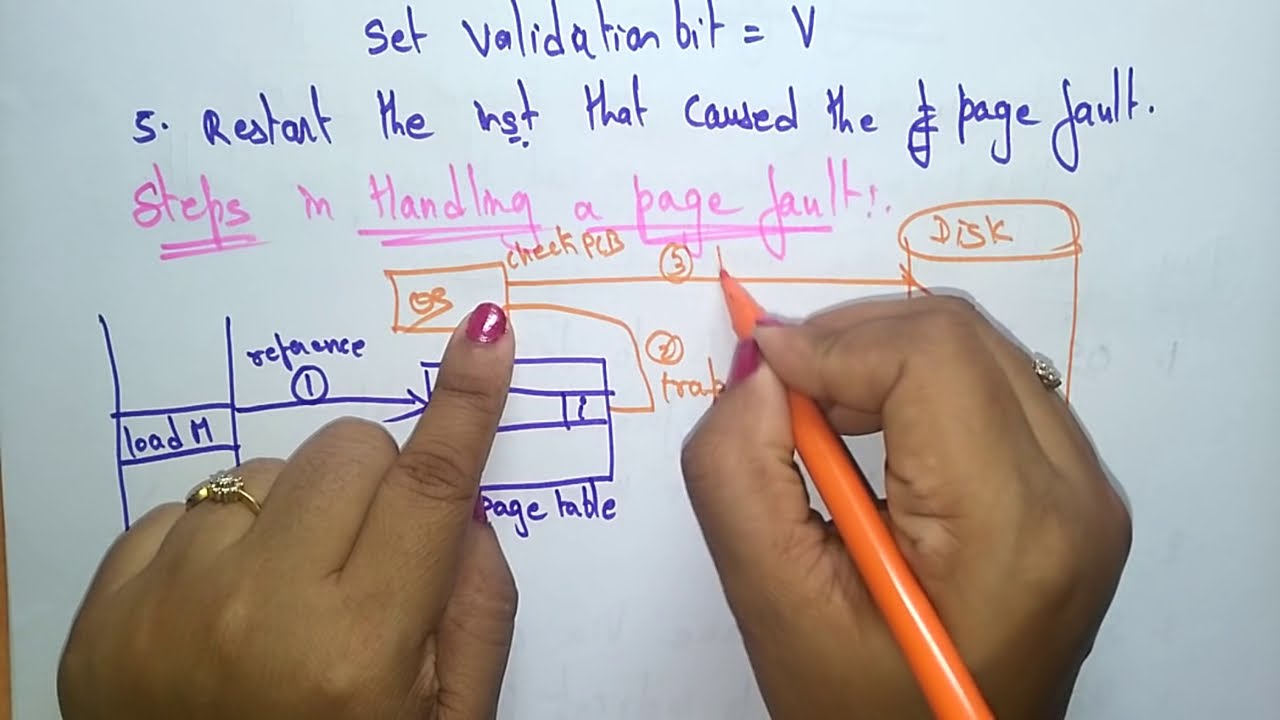 Set Validation bit = V
5. Restart the inst that caused the page fault.
Steps in Handling a page fault:.
check PCB
3
DISK
OS
reference
1
2
trap
i
load M
page table